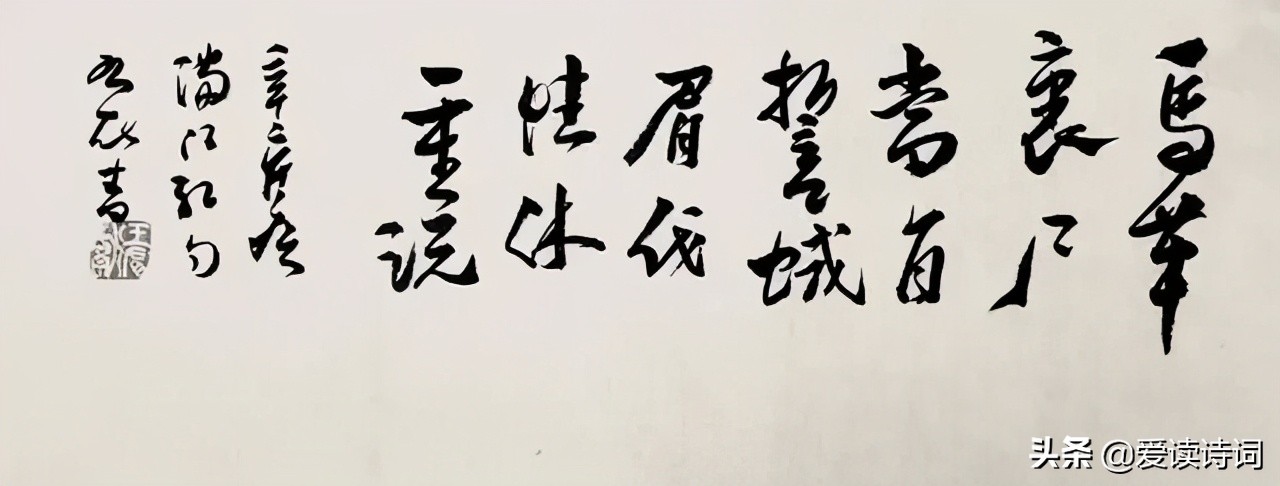 馬革
裹尸
當自
誓蛾
眉伐
性休
重説
辛弃疾
滿江紅句
書
头条 @爱读诗词